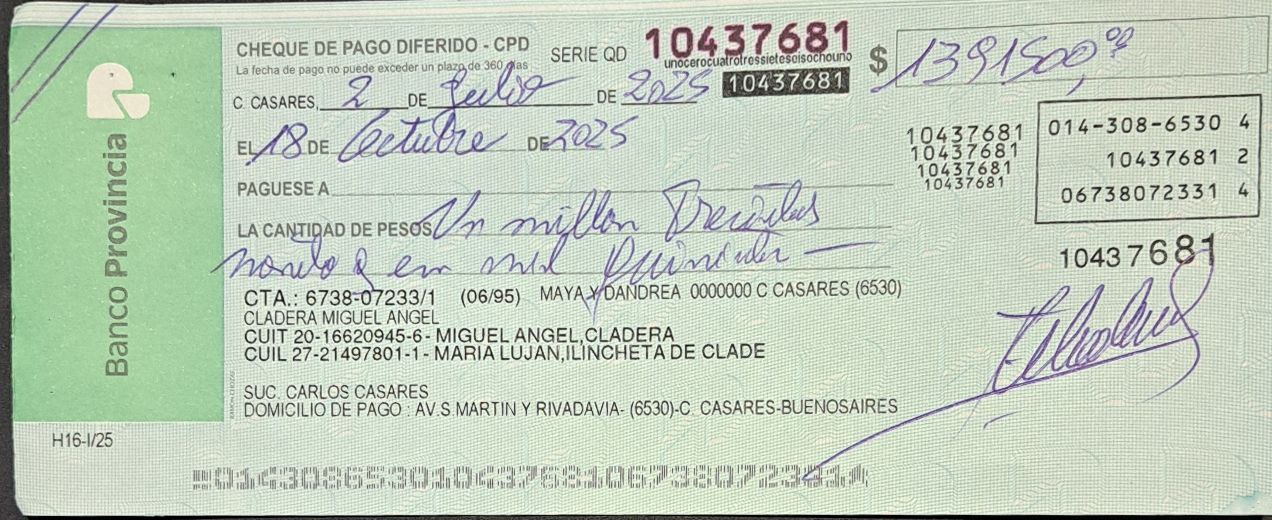 CHEQUE DE PAGO DIFERIDO - CPD SERIE QD 10437681 $ 1391500,00
La fecha de pago no puede exceder un plazo de 360 días
unocerocuatrotressieteseisochouno
10437681
C. CASARES, 2 DE Julio DE 2025
EL 18 DE Octubre DE 2025
10437681
10437681
10437681
10437681
014-308-6530 4
10437681 2
06738072331 4
PAGUESE A
LA CANTIDAD DE PESOS Un millon
mil
10437681
CTA.: 6738-07233/1 (06/95) MAYA Y DANDREA 0000000 C CASARES (6530)
CLADERA MIGUEL ANGEL
CUIT 20-16620945-6 - MIGUEL ANGEL,CLADERA
CUIL 27-21497801-1 - MARIA LUJAN,ILINCHETA DE CLADE
SUC. CARLOS CASARES
DOMICILIO DE PAGO : AV.S.MARTIN Y RIVADAVIA- (6530)-C. CASARES-BUENOSAIRES
Banco Provincia
H16-I/25